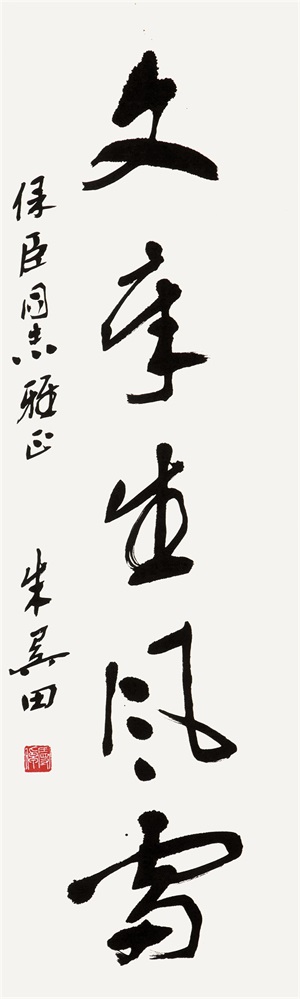 文章生风雷
保臣同志雅正
朱昊田